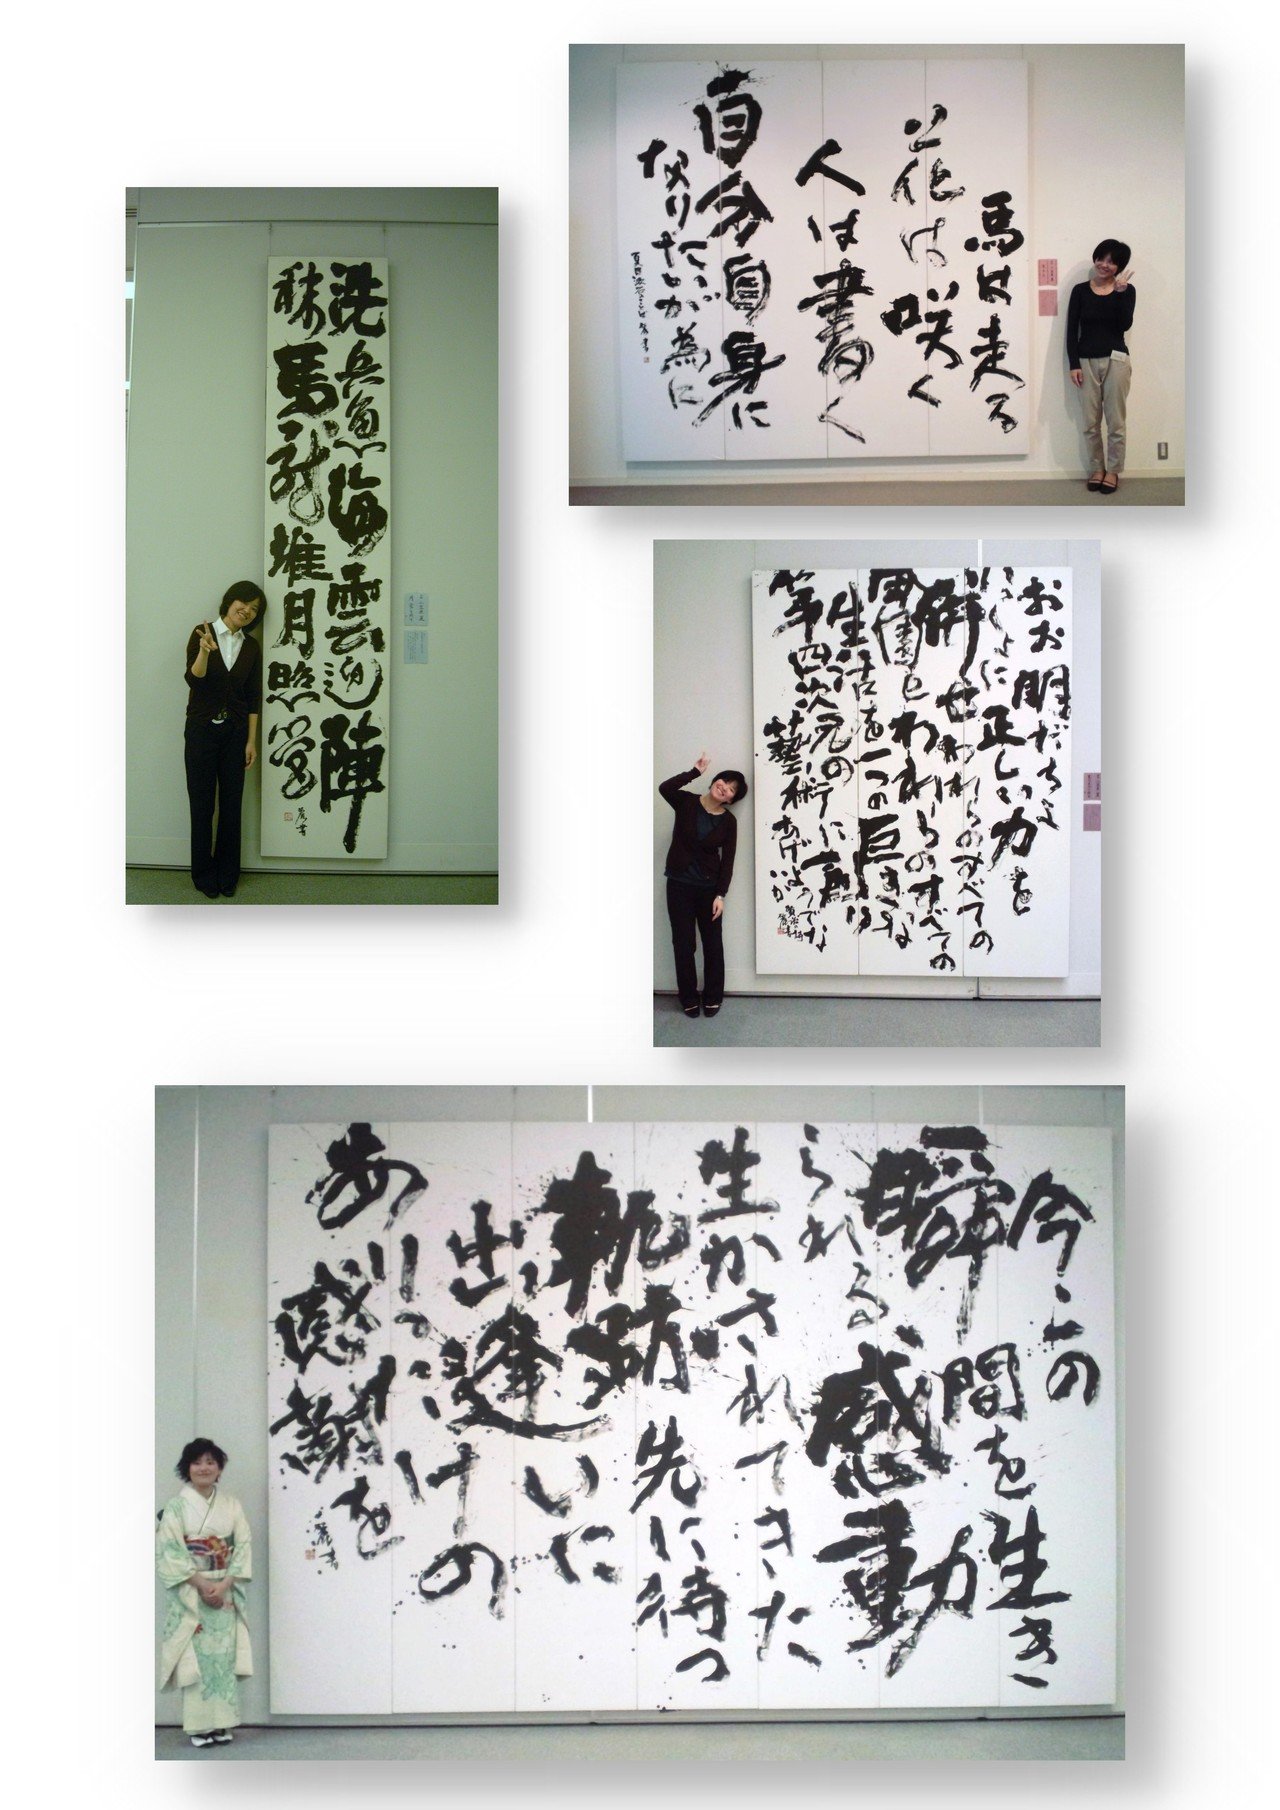 洗兵魚海雲迎陣
秣馬龍堆月照営
麗書
馬は走る
花は咲く
人は書く
自分自身に
なりたいが為に
夏目漱石のことば 麗書
おお朋だちよ
いっしょに正しい力を
併せわれらのすべての
田園とわれらのすべての
生活を一つの巨きな
第四次元の
藝術に創り
あげようでな
いか
今、この
瞬間を生き
られる感動
生かされてきた
軌跡先に待つ
出逢いに
ありったけの
感謝を
麗書